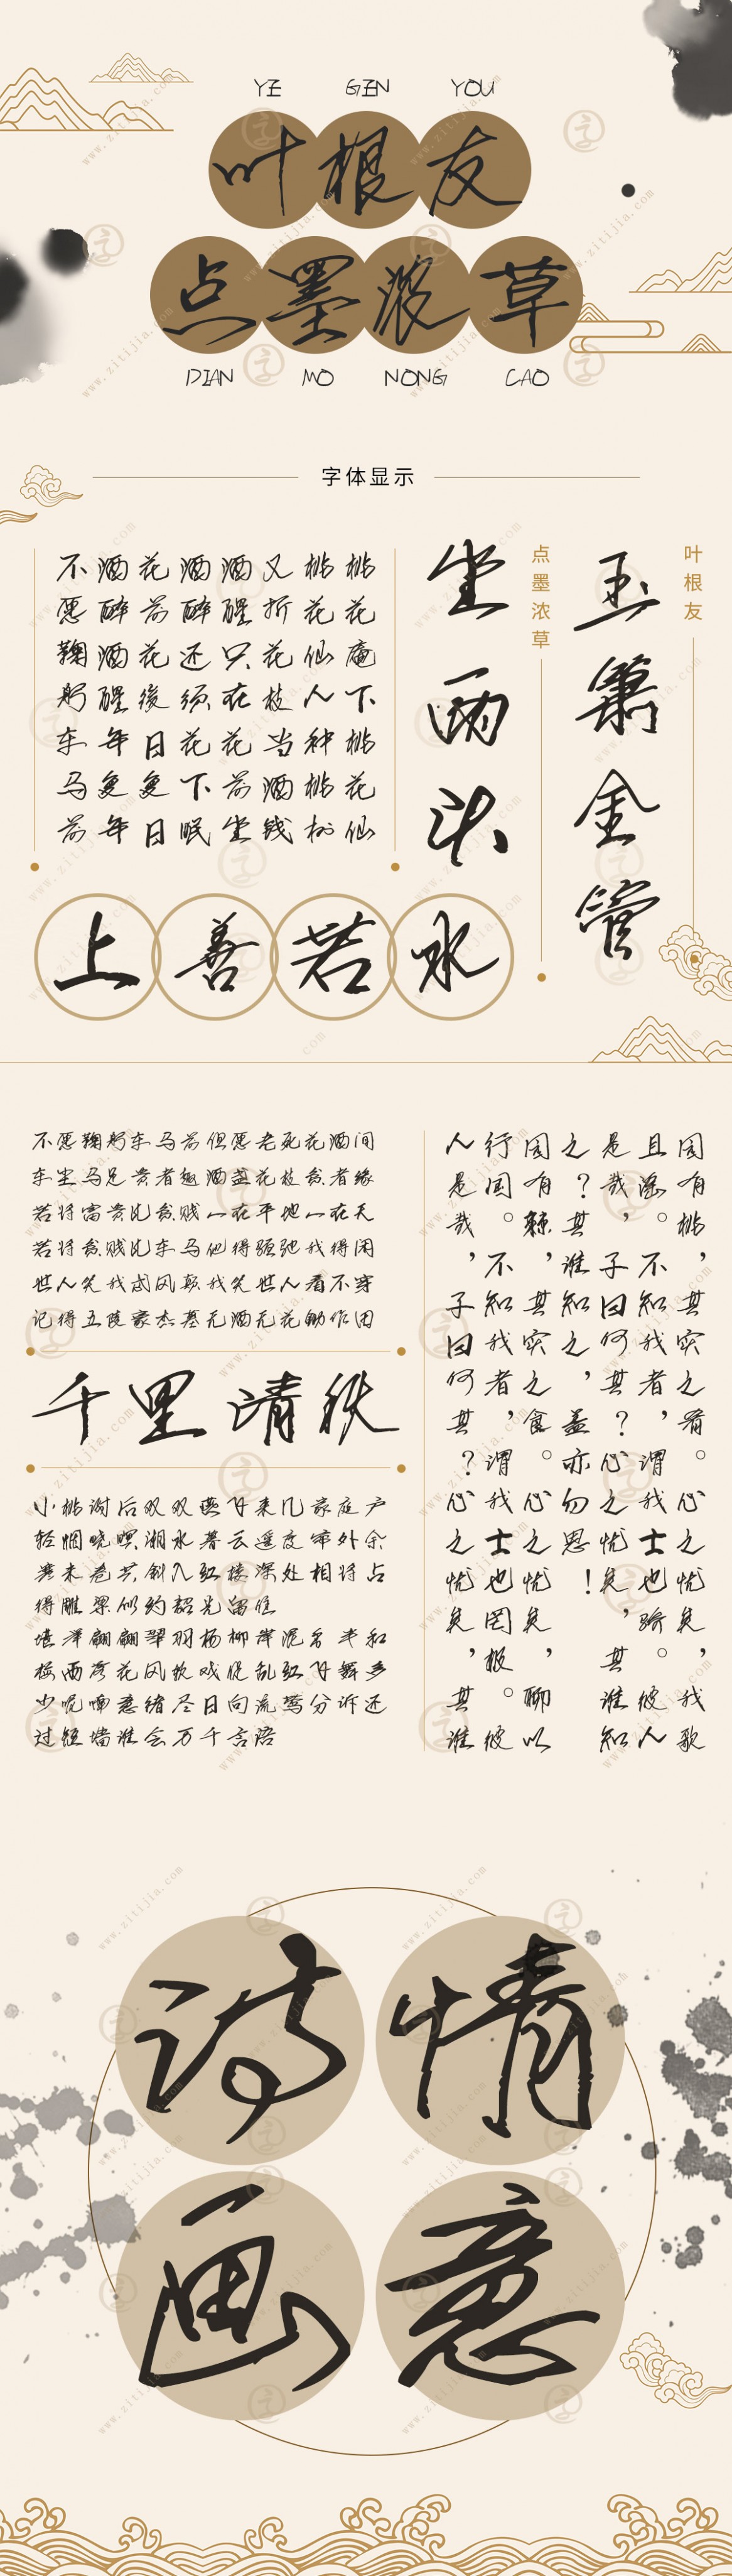 YE GEN YOU
叶根友
点墨浓草
DIAN MO NONG CAO
字体显示
叶根友
点墨浓草
玉箫金管
坐两头
桃花庵下桃花仙
桃花仙人种桃树
又折花枝当酒钱
酒醒只在花前坐
酒醉还须花下眠
花前花後日复日
酒醉酒醒年复年
不愿鞠躬车马前
上善若水
不愿鞠躬车马前但愿老死花酒间
车尘马足贵者趣酒盏花枝贫者缘
若将富贵比贫贱一在平地一在天
若将贫贱比车马他得驱驰我得闲
世人笑我忒风颠我笑世人看不穿
记得五陵豪杰墓无酒无花锄作田
千里清秋
小桃谢后双双燕飞来几家庭户
轻烟晓暝湘水暮云遥度帘外余
寒未卷共斜入红楼深处相将占
得雕梁似约韶光留住
堪举翩翩翠羽杨柳岸泥香半和
梅雨落花风软戏促乱红飞舞多
少呢喃意绪尽日向流莺分诉还
过短墙谁会万千言语
园有桃，其实之肴。心之忧矣，我歌
且谣。不知我者，谓我士也骄。彼人
是哉，子曰何其？心之忧矣，其谁知
之？其谁知之，盖亦勿思！
园有棘，其实之食。心之忧矣，聊以
行国。不知我者，谓我士也罔极。彼
人是哉，子曰何其？心之忧矣，其谁
诗情
画意
www.zitijia.com